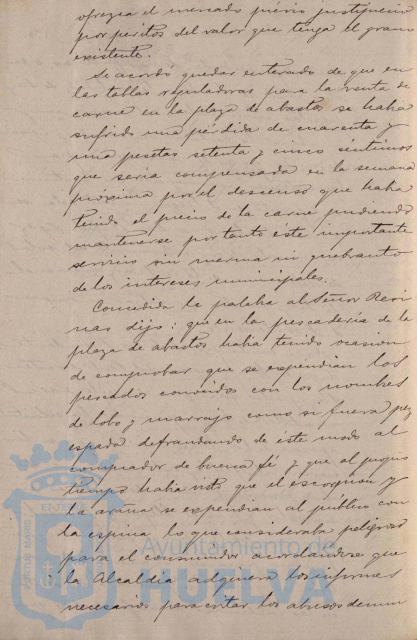 ofrezca el mercado prévio justiprecio
por peritos del valor que tenga el grano
existente.
Se acordó quedar enterado de que en
las tablas reguladoras para la venta de
carne en la plaza de abastos se había
sufrido una pérdida de cuarenta y
una pesetas setenta y cinco céntimos
que sería compensada en la semana
próxima por el descenso que había
tenido el precio de la carne pudiendo
mantenerse por tanto este importante
servicio sin merma ni quebranto
de los intereses municipales.
Concedida la palabra al Señor
dijo: que en la pescadería de la
plaza de abastos había tenido ocasion
de comprobar que se expendian los
pescados conocidos con los nombres
de lobo y marrajo como si fuera pez
espada defraudando de éste modo al
comprador de buena fé y que al propio
tiempo había visto que el escorpion y
la araña se expendian al público con
la espina lo que consideraba peligroso
para el consumidor acordandose que
la Alcaldia adquiera los informes
necesarios para evitar los abusos denun
Ayuntamiento de
HUELVA